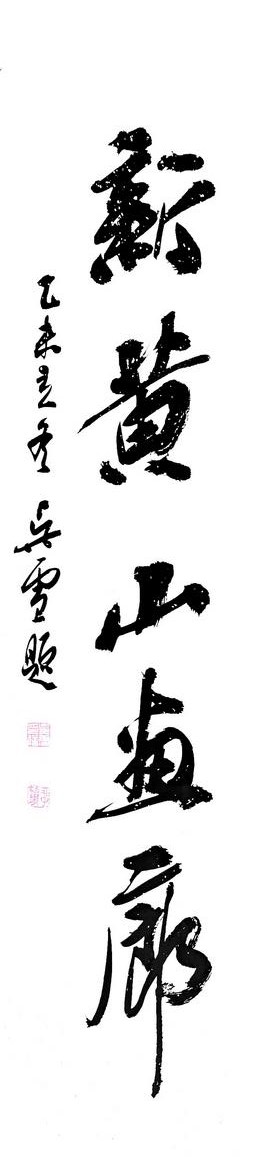 新黄山画廊
乙未立冬 吴雪题